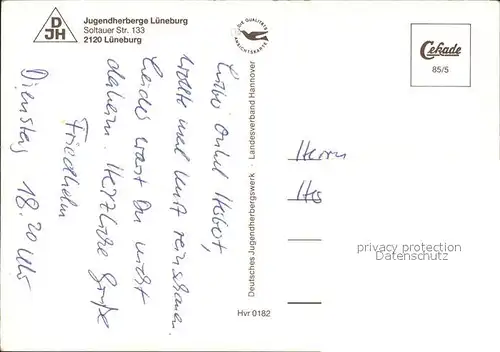 DJH
Jugendherberge Lüneburg
Soltauer Str. 133
2120 Lüneburg
DIE QUALITÄTS
ANSICHTSKARTE
Cekade
85/5
Lieber Onkel Herbert,
wollte mal kurz reinschauen.
Leider warst Du nicht
daheim. Herzliche Grüße
Friedhelm
Dienstag 18.20 Uhr
Deutsches Jugendherbergswerk · Landesverband Hannover
Hvr 0182
Herrn
privacy protection
AnsichtskartenCenter.de